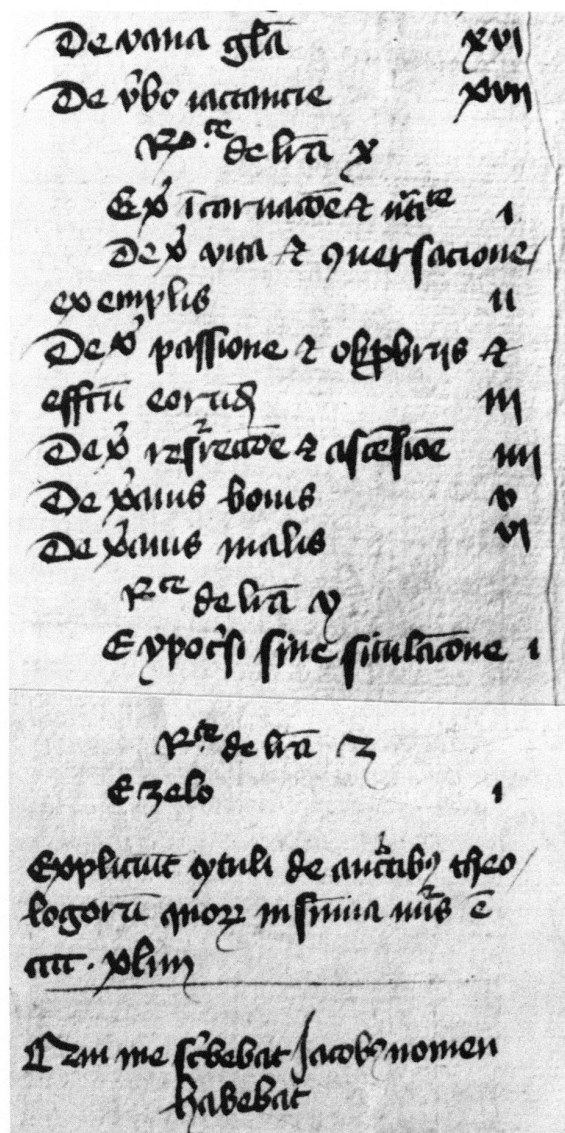 De vana gl̄a xvi
De v̾bo iactancie xvii
de lr̄a x
E xp̄i īcarnac̄oe ⁊ i
De xp̄i vita ⁊ ꝯuersacione/
exemplis ii
De xp̄i passione ⁊ obp̱brijs ⁊
effctū eorūd iii
De xp̄i resᷣrecc̄oe ⁊ ascēsiōe iiii
De xp̄anis bonis v
De xp̄anis malis vi
Rᶜᵉ de lr̄a y
E ypoc̾si siue sīulac̄one i
Rᶜᵉ de lr̄a z
E zelo i
Expliciūt tytuli de auctͣibꝫ theo/
logorū quoꝝ in sūma nūs ē
xliiii
Qui me sc̾bebat Jacobꝰ nomen
habebat